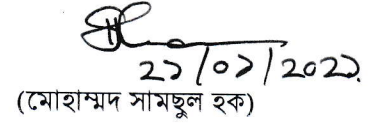 ২১/০১/২০২১
(মোহাম্মদ সামছুল হক)